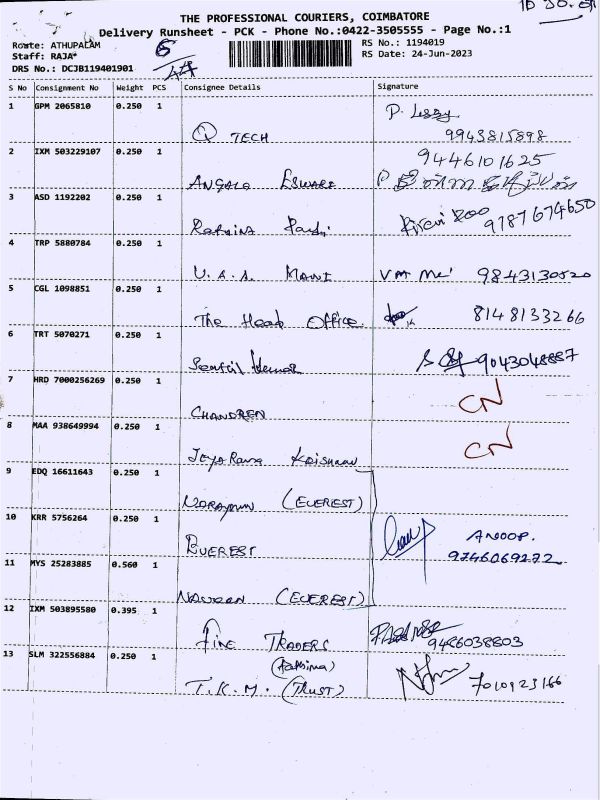 THE PROFESSIONAL COURIERS, COIMBATORE
Delivery Runsheet - PCK - Phone No.:0422-3505555 - Page No.:1
Route: ATHUPALAM
Staff: RAJA*
DRS No.: DCJB119401901
RS No.: 1194019
RS Date: 24-Jun-2023
S No Consignment No Weight PCS Consignee Details Signature
1 GPM 2065810 0.250 1
Q TECH 9943815898
2 IXM 503229107 0.250 1 9446101625
ANGALA ESWARI
3 ASD 1192202 0.250 1
9787674650
4 TRP 5880784 0.250 1
U.A.A. MANI 9843130520
5 CGL 1098851 0.250 1
The Head Office 8148133266
6 TRT 5070271 0.250 1
Senthil Kumar 9043048887
7 HRD 7000256269 0.250 1 CN
CHANDREN
8 MAA 938649994 0.250 1 CN
Jeya Rama Krishnan
9 EDQ 16611643 0.250 1
NARAYANAN (EVEREST)
10 KRR 5756264 0.250 1 ANOOP.
EVEREST 9746069272
11 MYS 25283885 0.560 1
(EVEREST)
12 IXM 503895580 0.395 1
Fine TRADERS 9486038803
13 SLM 322556884 0.250 1
(Fathima)
T.K.M. (TRUST) 7010923166